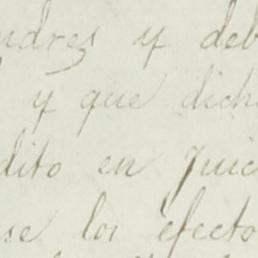 ndres y deb
y que dich
dito en Juic
se los efecto